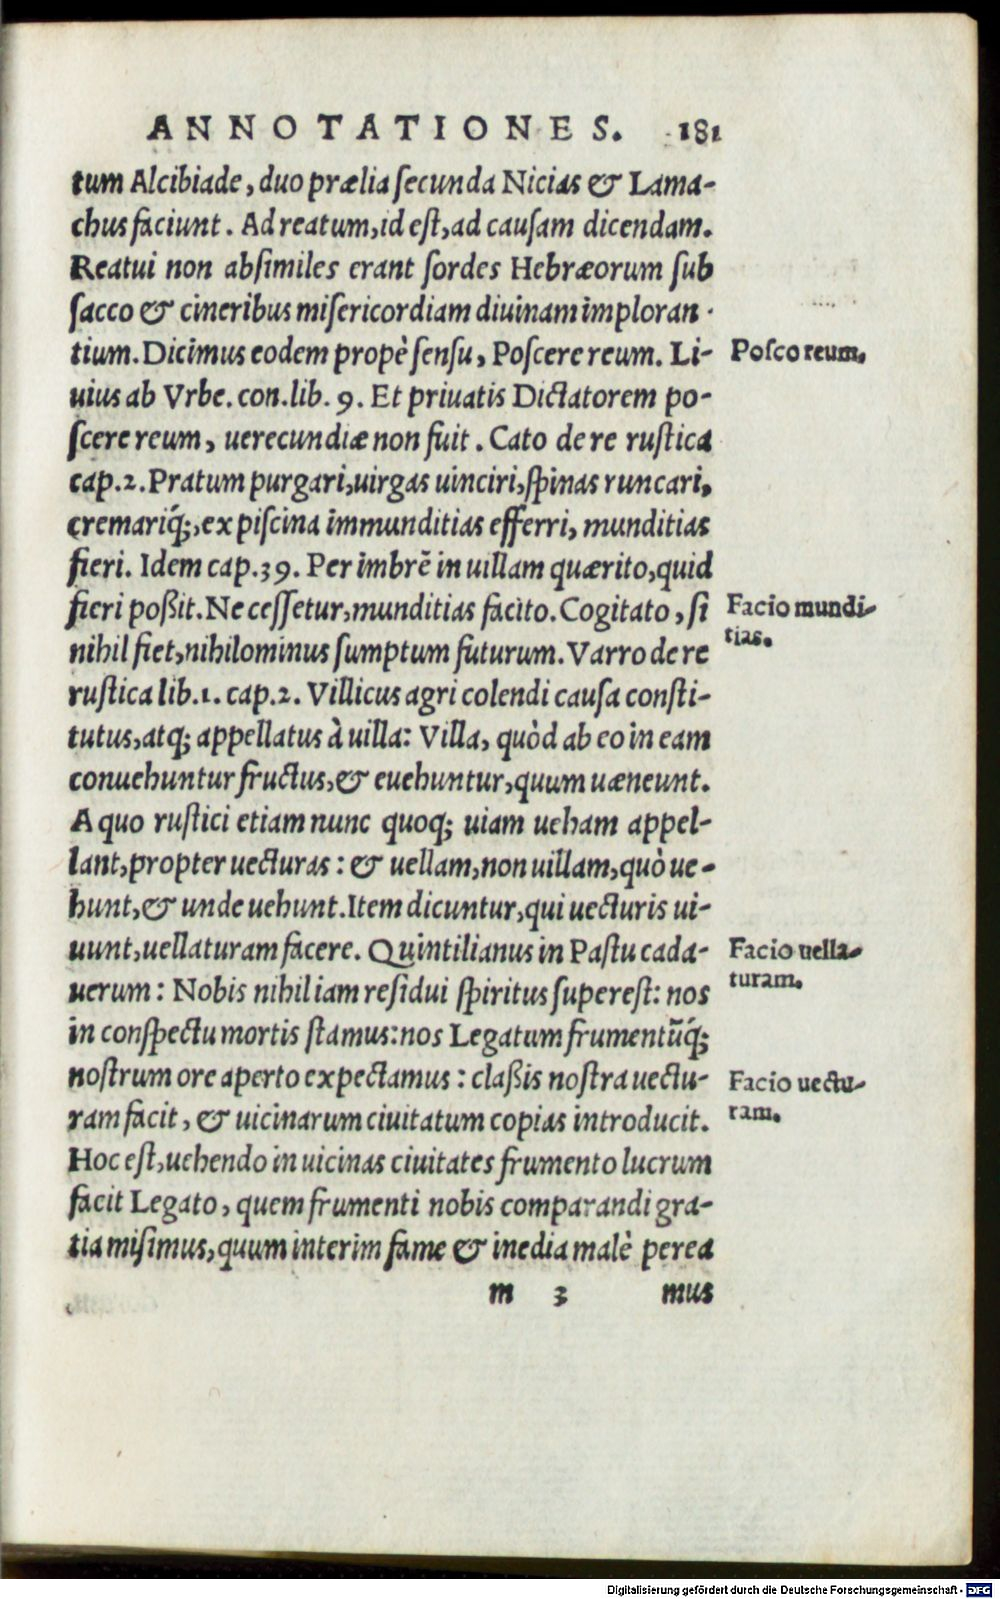 ANNOTATIONES. 181
tum Alcibiade, duo prælia secunda Nicias & Lama-
chus faciunt. Ad reatum, id est, ad causam dicendam.
Reatui non absimiles erant sordes Hebræorum sub
sacco & cineribus misericordiam diuinam imploran-
tium. Dicimus eodem propè sensu, Poscere reum. Li-
Posco reum.
uius ab Vrbe. con. lib. 9. Et priuatis Dictatorem po-
scere reum, uerecundiæ non fuit. Cato de re rustica
cap. 2. Pratum purgari, uirgas uinciri, spinas runcari,
cremariq́;, ex piscina immunditias efferri, munditias
fieri. Idem cap. 39. Per imbrē in uillam quærito, quid
fieri poßit. Ne cessetur, munditias facito. Cogitato, si
Facio mundi-
nihil fiet, nihilominus sumptum futurum. Varro de re
tias.
rustica lib. 1. cap. 2. Villicus agri colendi causa consti-
tutus, atq; appellatus à uilla: Villa, quòd ab eo in eam
conuehuntur fructus, & euehuntur, quum uæneunt.
A quo rustici etiam nunc quoq; uiam ueham appel-
lant, propter uecturas: & uellam, non uillam, quò ue-
hunt, & unde uehunt. Item dicuntur, qui uecturis ui-
uunt, uellaturam facere. Quintilianus in Pastu cada-
Facio uella-
turam.
uerum: Nobis nihil iam residui spiritus superest: nos
in conspectu mortis stamus: nos Legatum frumentūq́;
nostrum ore aperto expectamus: claßis nostra uectu-
Facio uectu-
ram.
ram facit, & uicinarum ciuitatum copias introducit.
Hoc est, uehendo in uicinas ciuitates frumento lucrum
facit Legato, quem frumenti nobis comparandi gra-
tia misimus, quum interim fame & inedia malè perea
m 3 mus
Digitalisierung gefördert durch die Deutsche Forschungsgemeinschaft - DFG